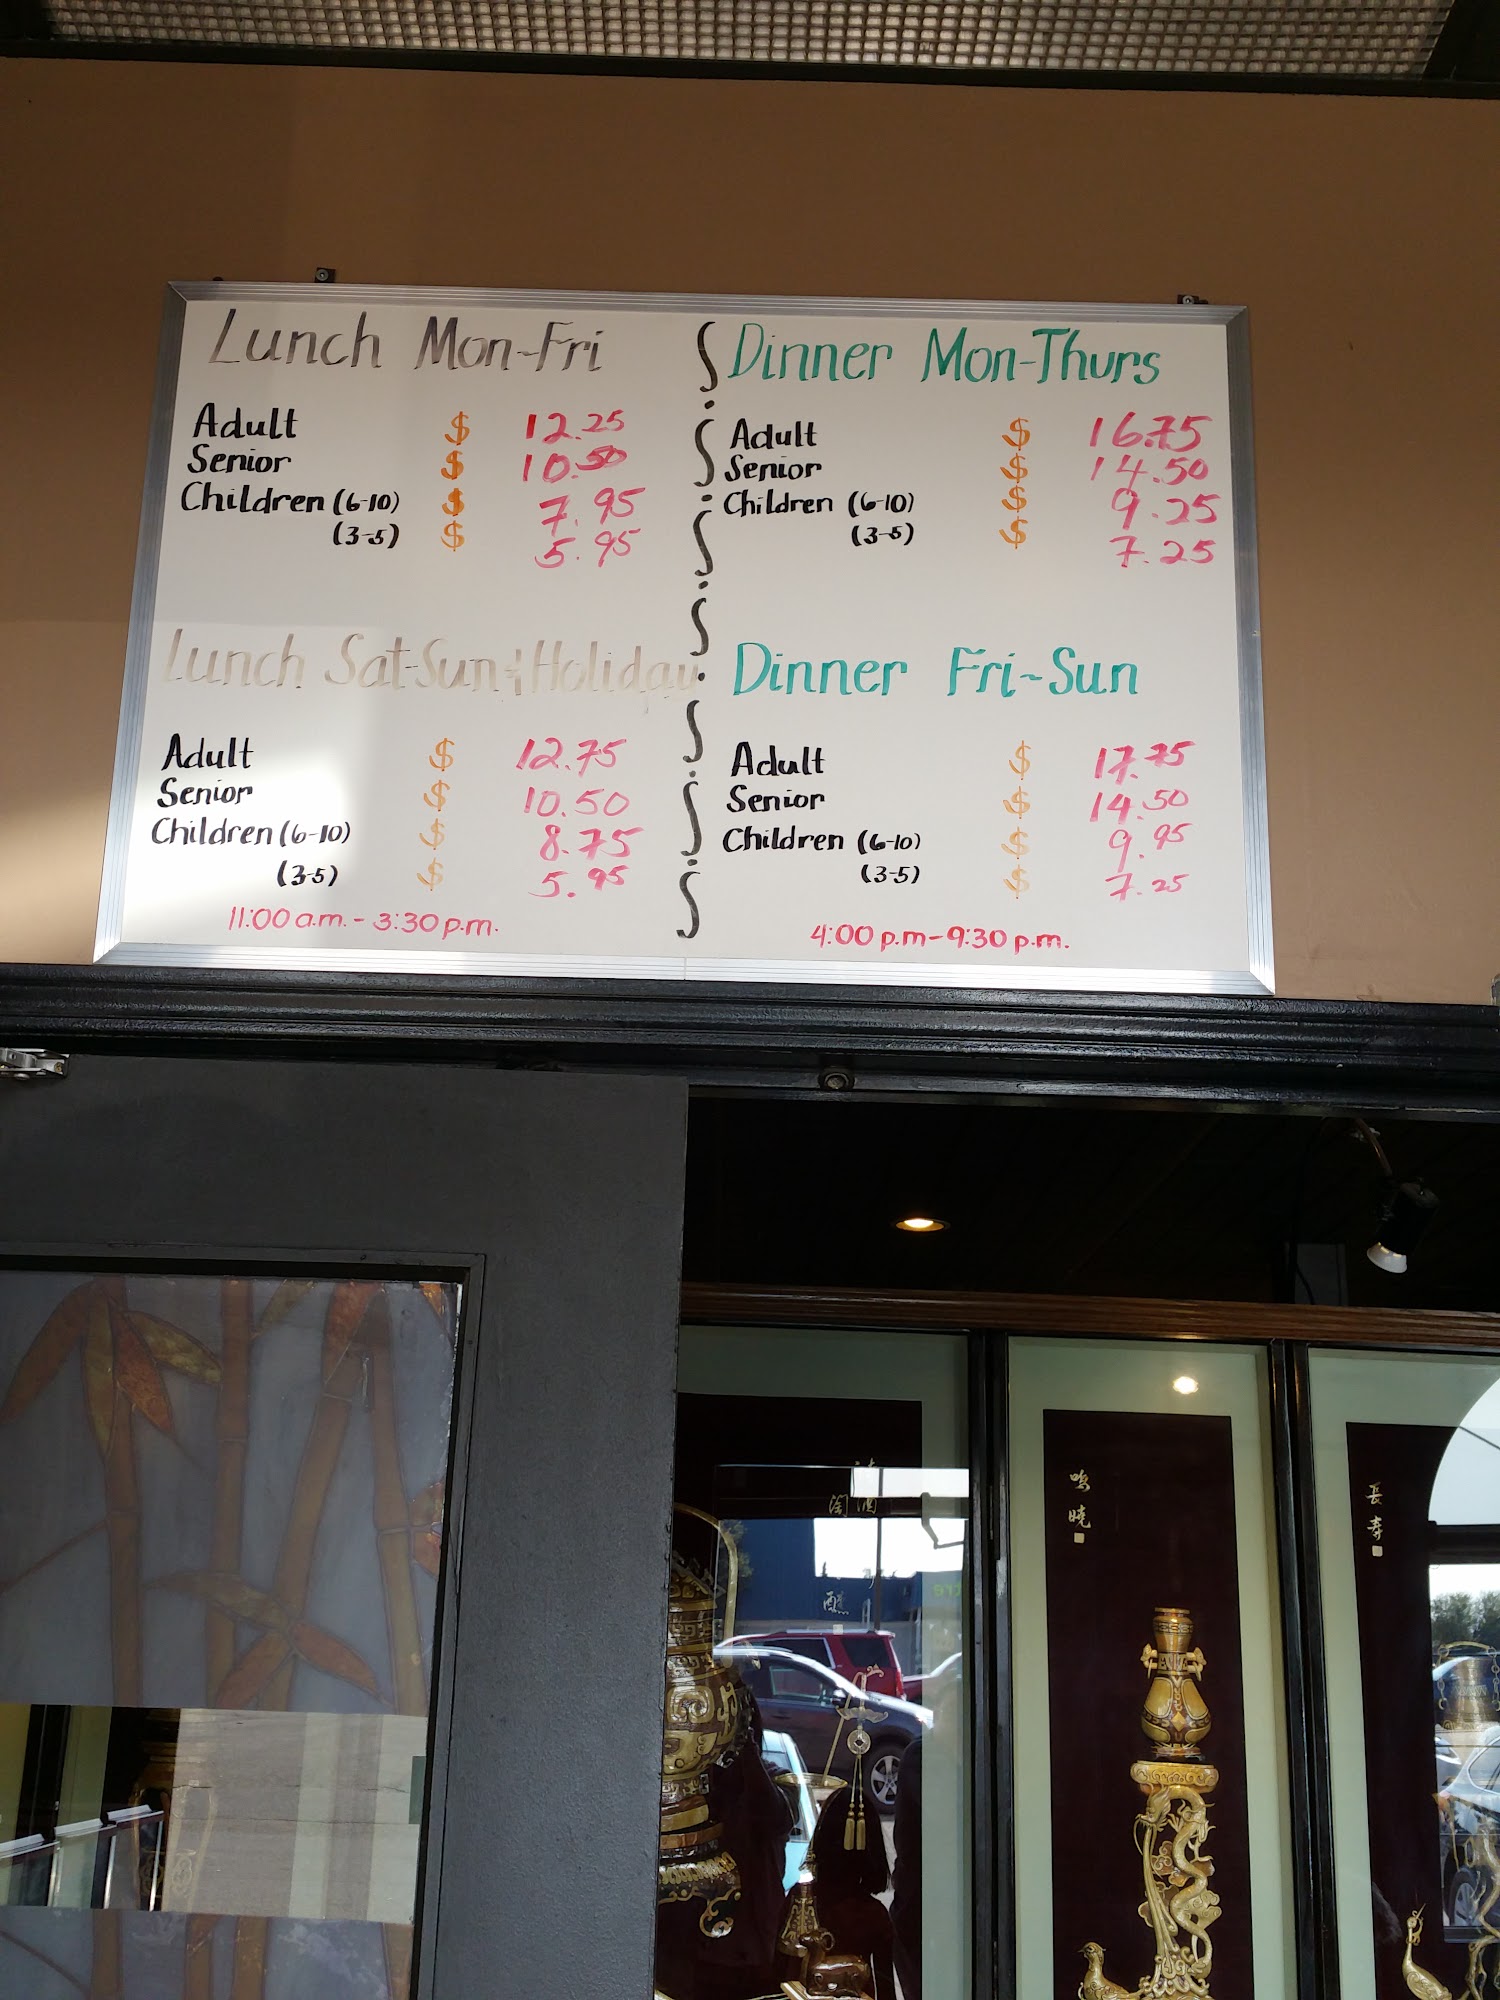 Lunch Mon-Fri
Adult $ 12.25
Senior $ 10.50
Children (6-10) $ 7.95
(3-5) $ 5.95
Dinner Mon-Thurs
Adult $ 16.75
Senior $ 14.50
Children (6-10) $ 9.25
(3-5) $ 7.25
Lunch Sat-Sun & Holiday
Adult $ 12.75
Senior $ 10.50
Children (6-10) $ 8.75
(3-5) $ 5.95
11:00 a.m. - 3:30 p.m.
Dinner Fri-Sun
Adult $ 17.75
Senior $ 14.50
Children (6-10) $ 9.95
(3-5) $ 7.25
4:00 p.m - 9:30 p.m.
鳴曉
長壽